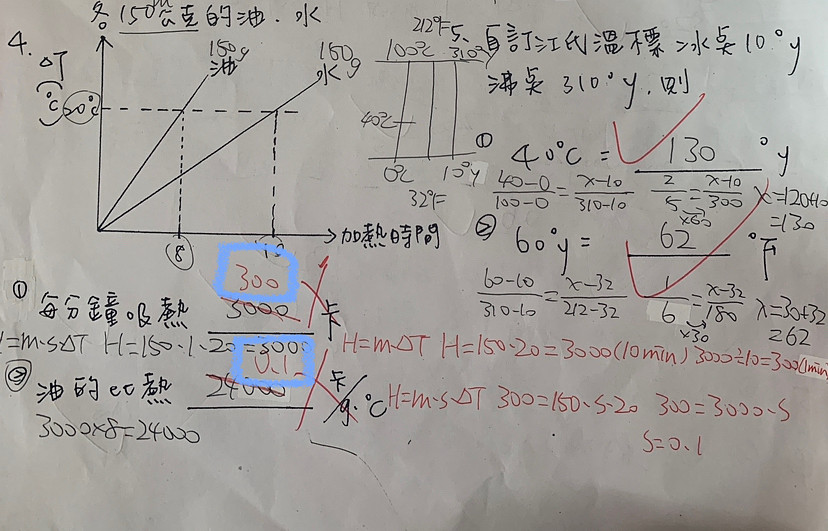 各150公克的油、水
4.
△T
(℃)
20℃
150g
油
150g
水
8
10
加熱時間
① 每分鐘吸熱 3000 卡
300
H=m·s·△T H=150·1·20=3000
H=m·△T H=150·20=3000(10min) 3000÷10=300(1min)
② 油的比熱 24000 卡/g·℃
0.1
3000×8=24000
H=m·s·△T 300=150·s·20 300=3000·s
s=0.1
5. 自訂江氏溫標 冰點10°y
沸點310°y,則
212°F
100℃ 310°y
40℃
0℃ 10°y
32°F
① 40℃= 130 °y
40-0/100-0=x-10/310-10 2/5=x-10/300 x=120+10
×60 =130
② 60°y= 62 °F
60-10/310-10=x-32/212-32 1/6=x-32/180 x=30+32
×30 =62